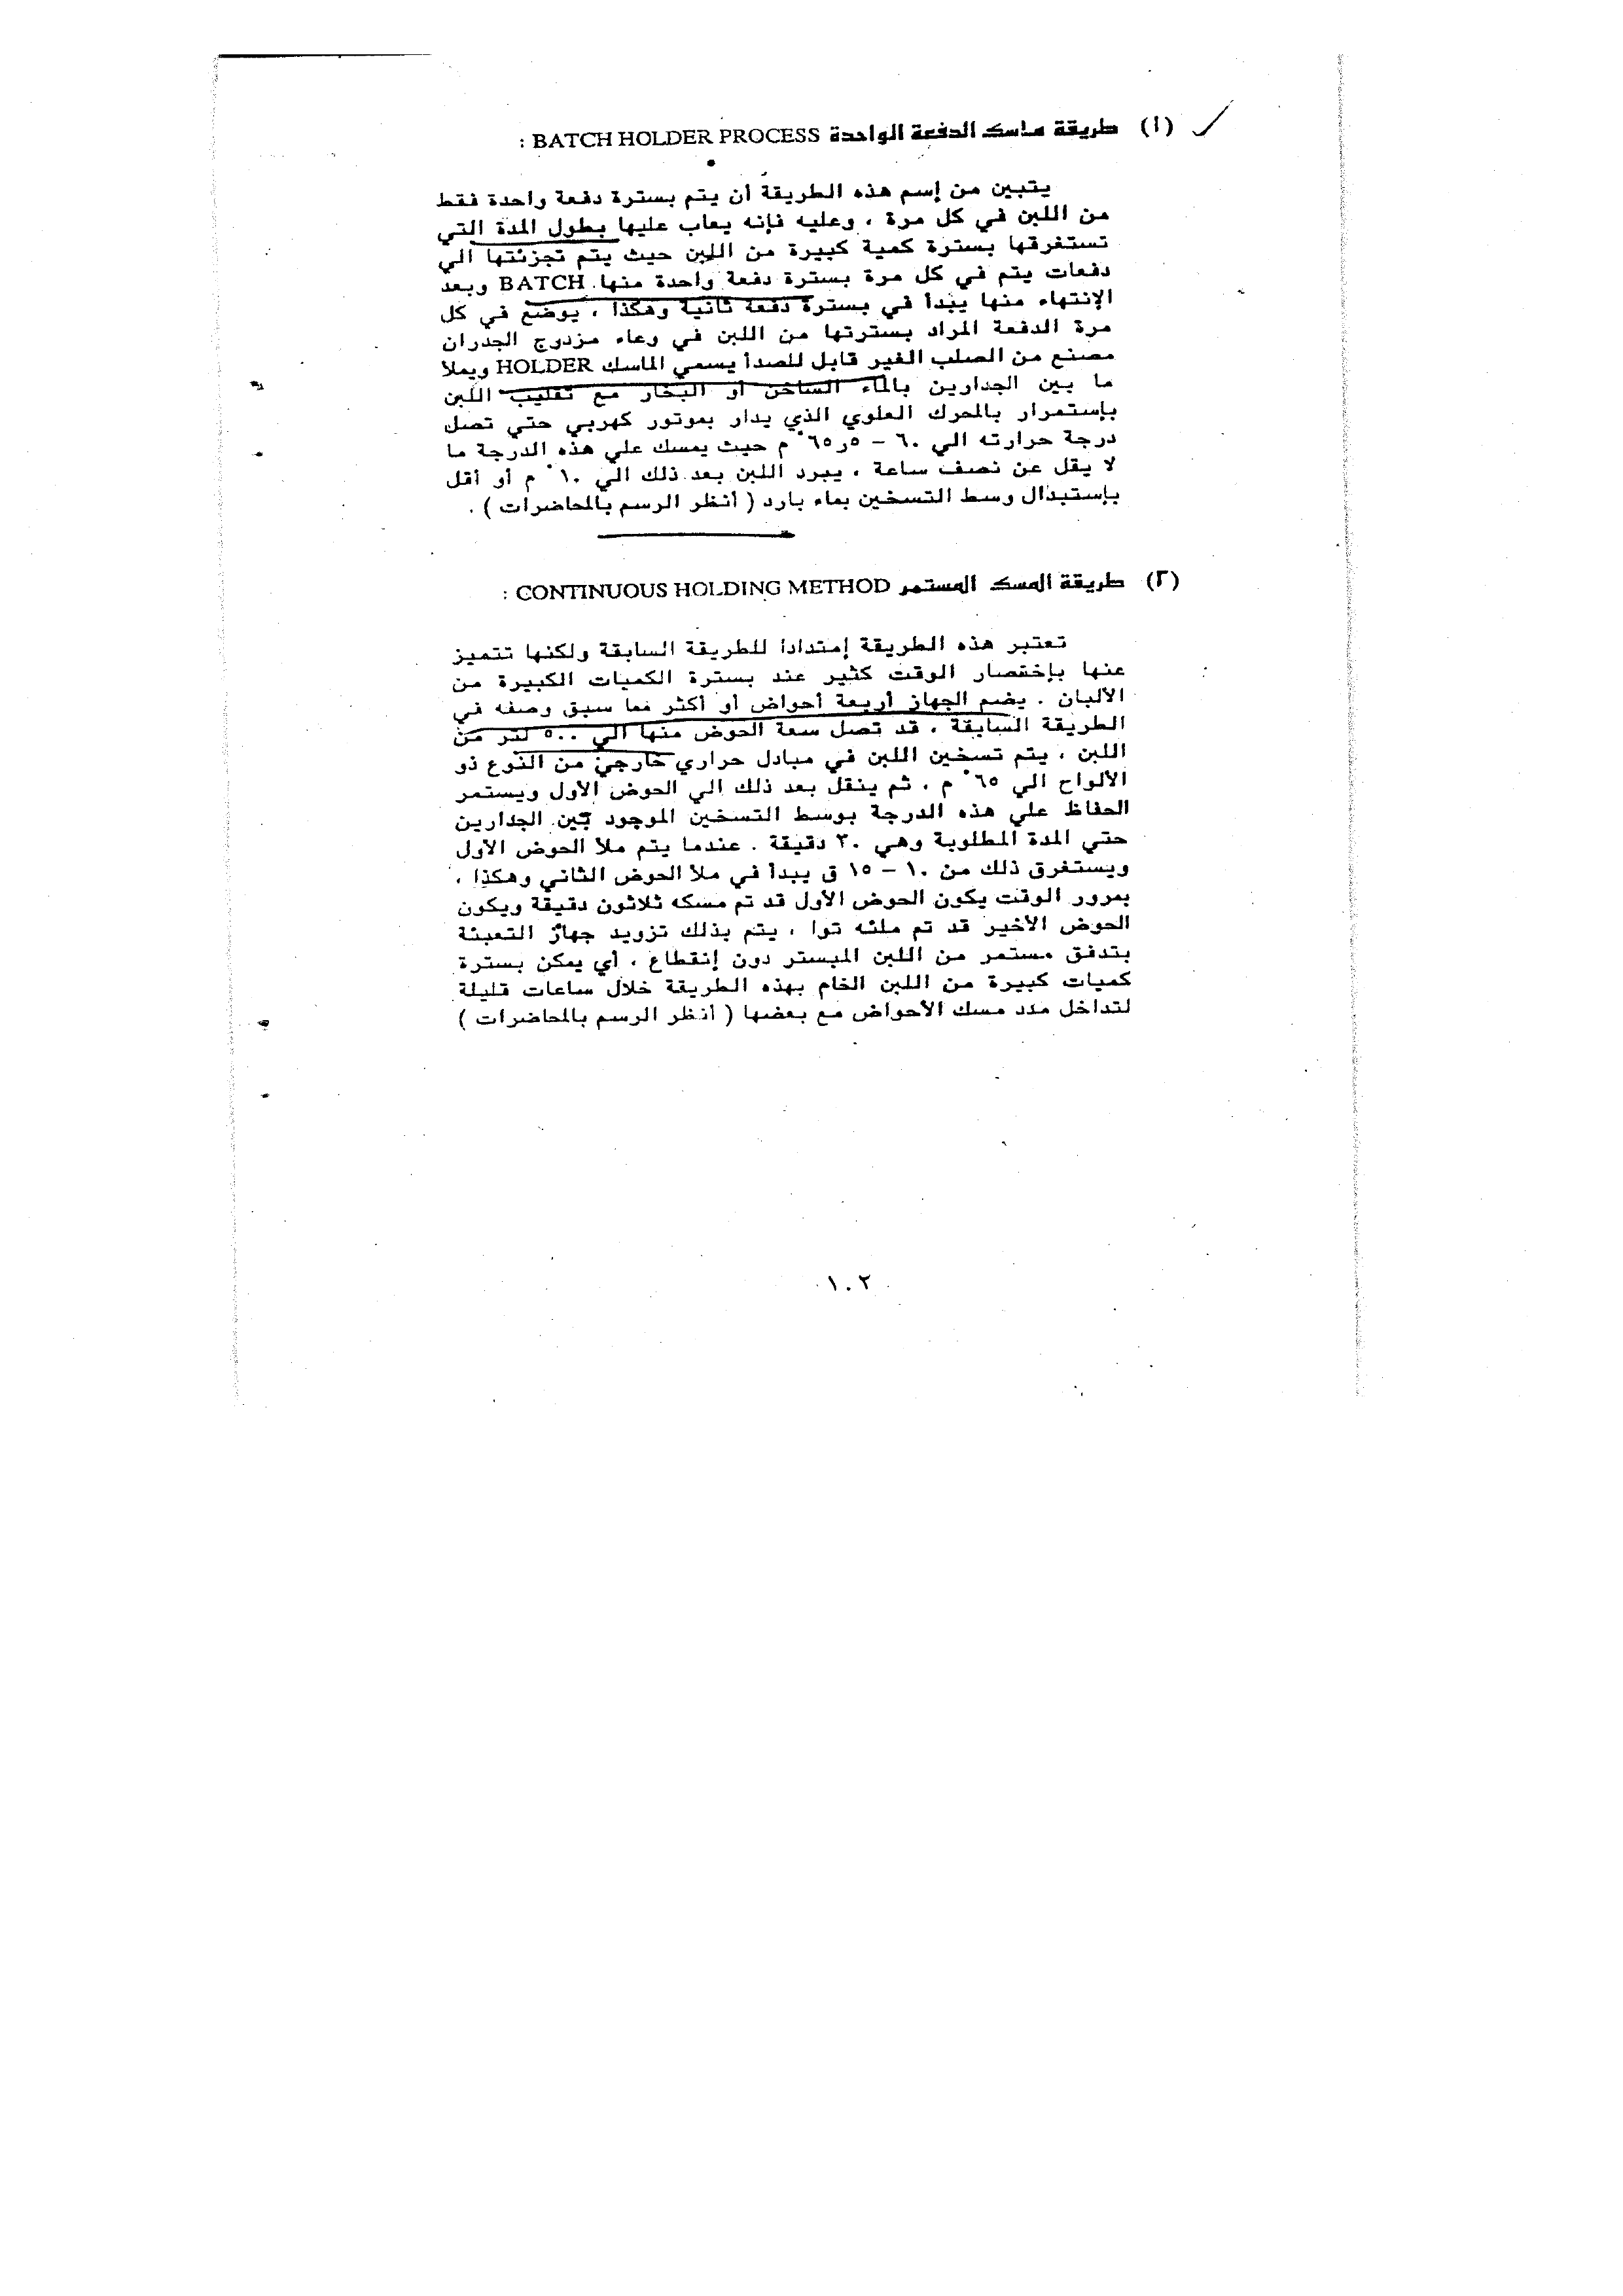 (١) طريقة ماسك الدفعة الواحدة BATCH HOLDER PROCESS :
يتبين من إسم هذه الطريقة أن يتم بسترة دفعة واحدة فقط
من اللبن في كل مرة ، وعليه فإنه يعاب عليها بطول المدة التي
تستغرقها بسترة كمية كبيرة من اللبن حيث يتم تجزئتها الي
دفعات يتم في كل مرة بسترة دفعة واحدة منها BATCH وبعد
الإنتهاء منها يبدأ في بسترة دفعة ثانية وهكذا ، يوضع في كل
مرة الدفعة المراد بسترتها من اللبن في وعاء مزدوج الجدران
مصنع من الصلب الغير قابل للصدأ يسمي الماسك HOLDER ويملأ
ما بين الجدارين بالماء الساخن أو البخار مع تقليب اللبن
بإستمرار بالمحرك العلوي الذي يدار بموتور كهربي حتي تصل
درجة حرارته الي ٦٠ – ٥ر٦٥° م حيث يمسك علي هذه الدرجة ما
لا يقل عن نصف ساعة ، يبرد اللبن بعد ذلك الي ١٠° م أو أقل
بإستبدال وسط التسخين بماء بارد ( أنظر الرسم بالمحاضرات ) .
(٢) طريقة المسك المستمر CONTINUOUS HOLDING METHOD :
تعتبر هذه الطريقة إمتدادا للطريقة السابقة ولكنها تتميز
عنها بإختصار الوقت كثير عند بسترة الكميات الكبيرة من
الألبان . يضم الجهاز أربعة أحواض أو أكثر مما سبق وصفه في
الطريقة السابقة ، قد تصل سعة الحوض منها الي ٥٠٠ لتر من
اللبن ، يتم تسخين اللبن في مبادل حراري خارجي من النوع ذو
الألواح الي ٦٥° م ، ثم ينقل بعد ذلك الي الحوض الأول ويستمر
الحفاظ علي هذه الدرجة بوسط التسخين الموجود بين الجدارين
حتي المدة المطلوبة وهي ٣٠ دقيقة . عندما يتم ملأ الحوض الأول
ويستغرق ذلك من ١٠ – ١٥ ق يبدأ في ملأ الحوض الثاني وهكذا ،
بمرور الوقت يكون الحوض الأول قد تم مسكه ثلاثون دقيقة ويكون
الحوض الأخير قد تم ملئه توا ، يتم بذلك تزويد جهاز التعبئة
بتدفق مستمر من اللبن المبستر دون إنقطاع ، أي يمكن بسترة
كميات كبيرة من اللبن الخام بهذه الطريقة خلال ساعات قليلة
لتداخل مدد مسك الأحواض مع بعضها ( أنظر الرسم بالمحاضرات )
١٠٢